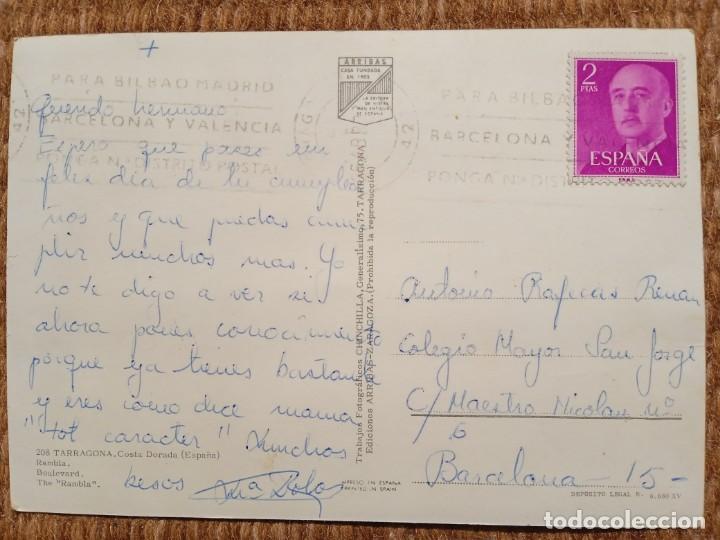 +
Querido hermano
Espero que pases un
feliz día de tu cumplea
ños y que puedas cum
plir muchos mas. Yo
no te digo a ver si
ahora pones conocimiento
porque ya tienes bastante
y eres como dice mama
"tot caracter" Muchos
besos
208 TARRAGONA. Costa Dorada (España)
Rambla.
Boulevard.
The "Rambla".
PARA BILBAO MADRID
BARCELONA Y VALENCIA
PONGA Nº DISTRITO POSTAL
42
ARRIBAS
CASA FUNDADA
EN 1903
LA EDITORA
DE VISTAS
MAS ANTIGUA
DE ESPAÑA
Trabajos Fotográficos CHINCHILLA. Generalísimo, 75. TARRAGONA
Ediciones ARRIBAS-ZARAGOZA. (Prohibida la reproducción)
IMPRESO EN ESPAÑA
PRINTED IN SPAIN
42
PARA BILBAO
BARCELONA Y VALE
PONGA Nº DISTRITO
2
PTAS
ESPAÑA
CORREOS
Antonio
Colegio Mayor San Jorge
C/ Maestro Nicolau nº
6
Barcelona - 15 -
DEPÓSITO LEGAL B.
todocoleccion
todocoleccion.net